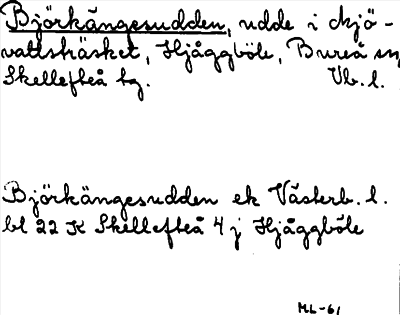 Björkängesudden, udde i Mjö-
vattsträsket, Hjåggböle, Bureå sn
Skellefteå tg. Vb. l.
Björkängesudden ek Västerb. l.
bl 22 K Skellefteå 4 j Hjåggböle
ML-61